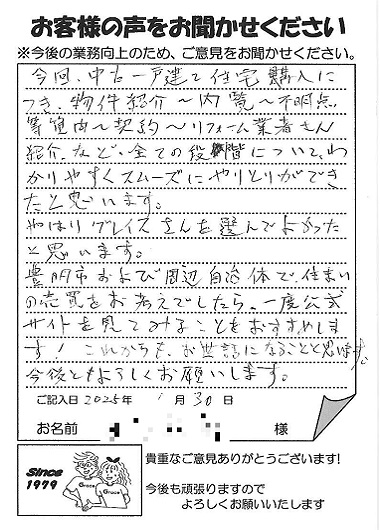 お客様の声をお聞かせください
※今後の業務向上のため、ご意見をお聞かせください。
今回、中古一戸建て住宅購入に
つき、物件紹介〜内覧〜不明点
等案内〜契約〜リフォーム業者さん
紹介、など、全ての段階について、わ
かりやすくスムーズにやりとりができ
たと思います。
やはりグレイスさんを選んでよかった
と思います。
豊明市および周辺自治体で、住まい
の売買をお考えでしたら、一度公式
サイトを見てみることをおすすめしま
す！これからも、お世話になることと思います。
今後ともよろしくお願いします。
ご記入日 2025年 1月 30日
お名前 様
Since
1979
Grace
Grace
貴重なご意見ありがとうございます!
今後も頑張りますので
よろしくお願いいたします